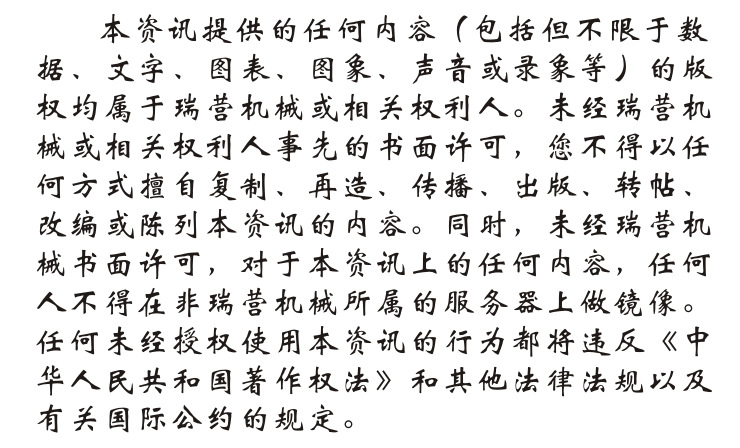 本资讯提供的任何内容（包括但不限于数
据、文字、图表、图象、声音或录象等）的版
权均属于瑞营机械或相关权利人。未经瑞营机
械或相关权利人事先的书面许可，您不得以任
何方式擅自复制、再造、传播、出版、转帖、
改编或陈列本资讯的内容。同时，未经瑞营机
械书面许可，对于本资讯上的任何内容，任何
人不得在非瑞营机械所属的服务器上做镜像。
任何未经授权使用本资讯的行为都将违反《中
华人民共和国著作权法》和其他法律法规以及
有关国际公约的规定。